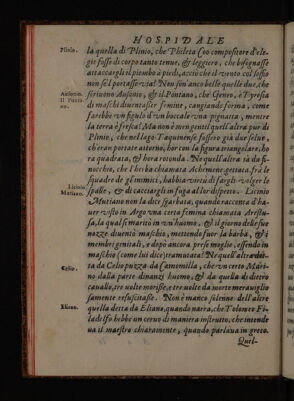 HOSPIDALE
Plinio.
la quella di Plinio, che Phileta Coo compositore d'ele-
gie fusse di corpo tanto tenue, & leggiero, che bisognasse
attaccargli il piombo à piedi, acciò che il vento col soffio
non se'l portasse via? Non son'anco belle quelle due, che
Ausonio.
Il Ponta-
no.
scrivono Ausonio, & il Pontano, che Ceneo, & Tyresia
di maschi diventasser femine, cangiando forma, come
farebbe un figulo d'un boccale una pignatta, mentre
la terra è fresca? Ma non è men gentil quell'altra pur di
Plinio, che nel lago Taquinense fussero già due selve,
ch'eran portate attorno, hor con la figura triangolare, ho
ra quadrata, & hora rotonda. Ne quell'altra si dà fi-
nocchie, che l'herba chiamata Achemene gettata, fra le
squadre de gl'inimici, habbia virtù di fargli volger le
Licinio
Mutiano.
spalle, & di cacciargli in fuga al lor dispetto. Licinio
Mutiano non la dice sgarbata, quando racconta d'ha-
ver visto in Argo una certa femina chiamata Arescu-
sa, la qual si maritò in un huomo, & il giorno delle sue
nozze diventò maschio, mettendo fuor la barba, & i
membri genitali, e dopò ancora prese moglie, essendo in
maschio (come lui dice) tramutata? Ne quell'altra
Celio.
ta da Celio puzza da Cantimilla, che un certo Mari-
no dalla parte dinanzi huomo, & da quella di dietro
cavallo, tre volte morisse, e tre volte da morte meraviglio
samente resuscitasse. Non è manco solenne dell'altre
Eliano.
quella detta da Eliano, quando narra, che Tolomeo Fi-
ladelfo hebbe un cervo di maniera instrutto, che intende
va il maestro chiaramente, quando parlava in greco.
Quel-